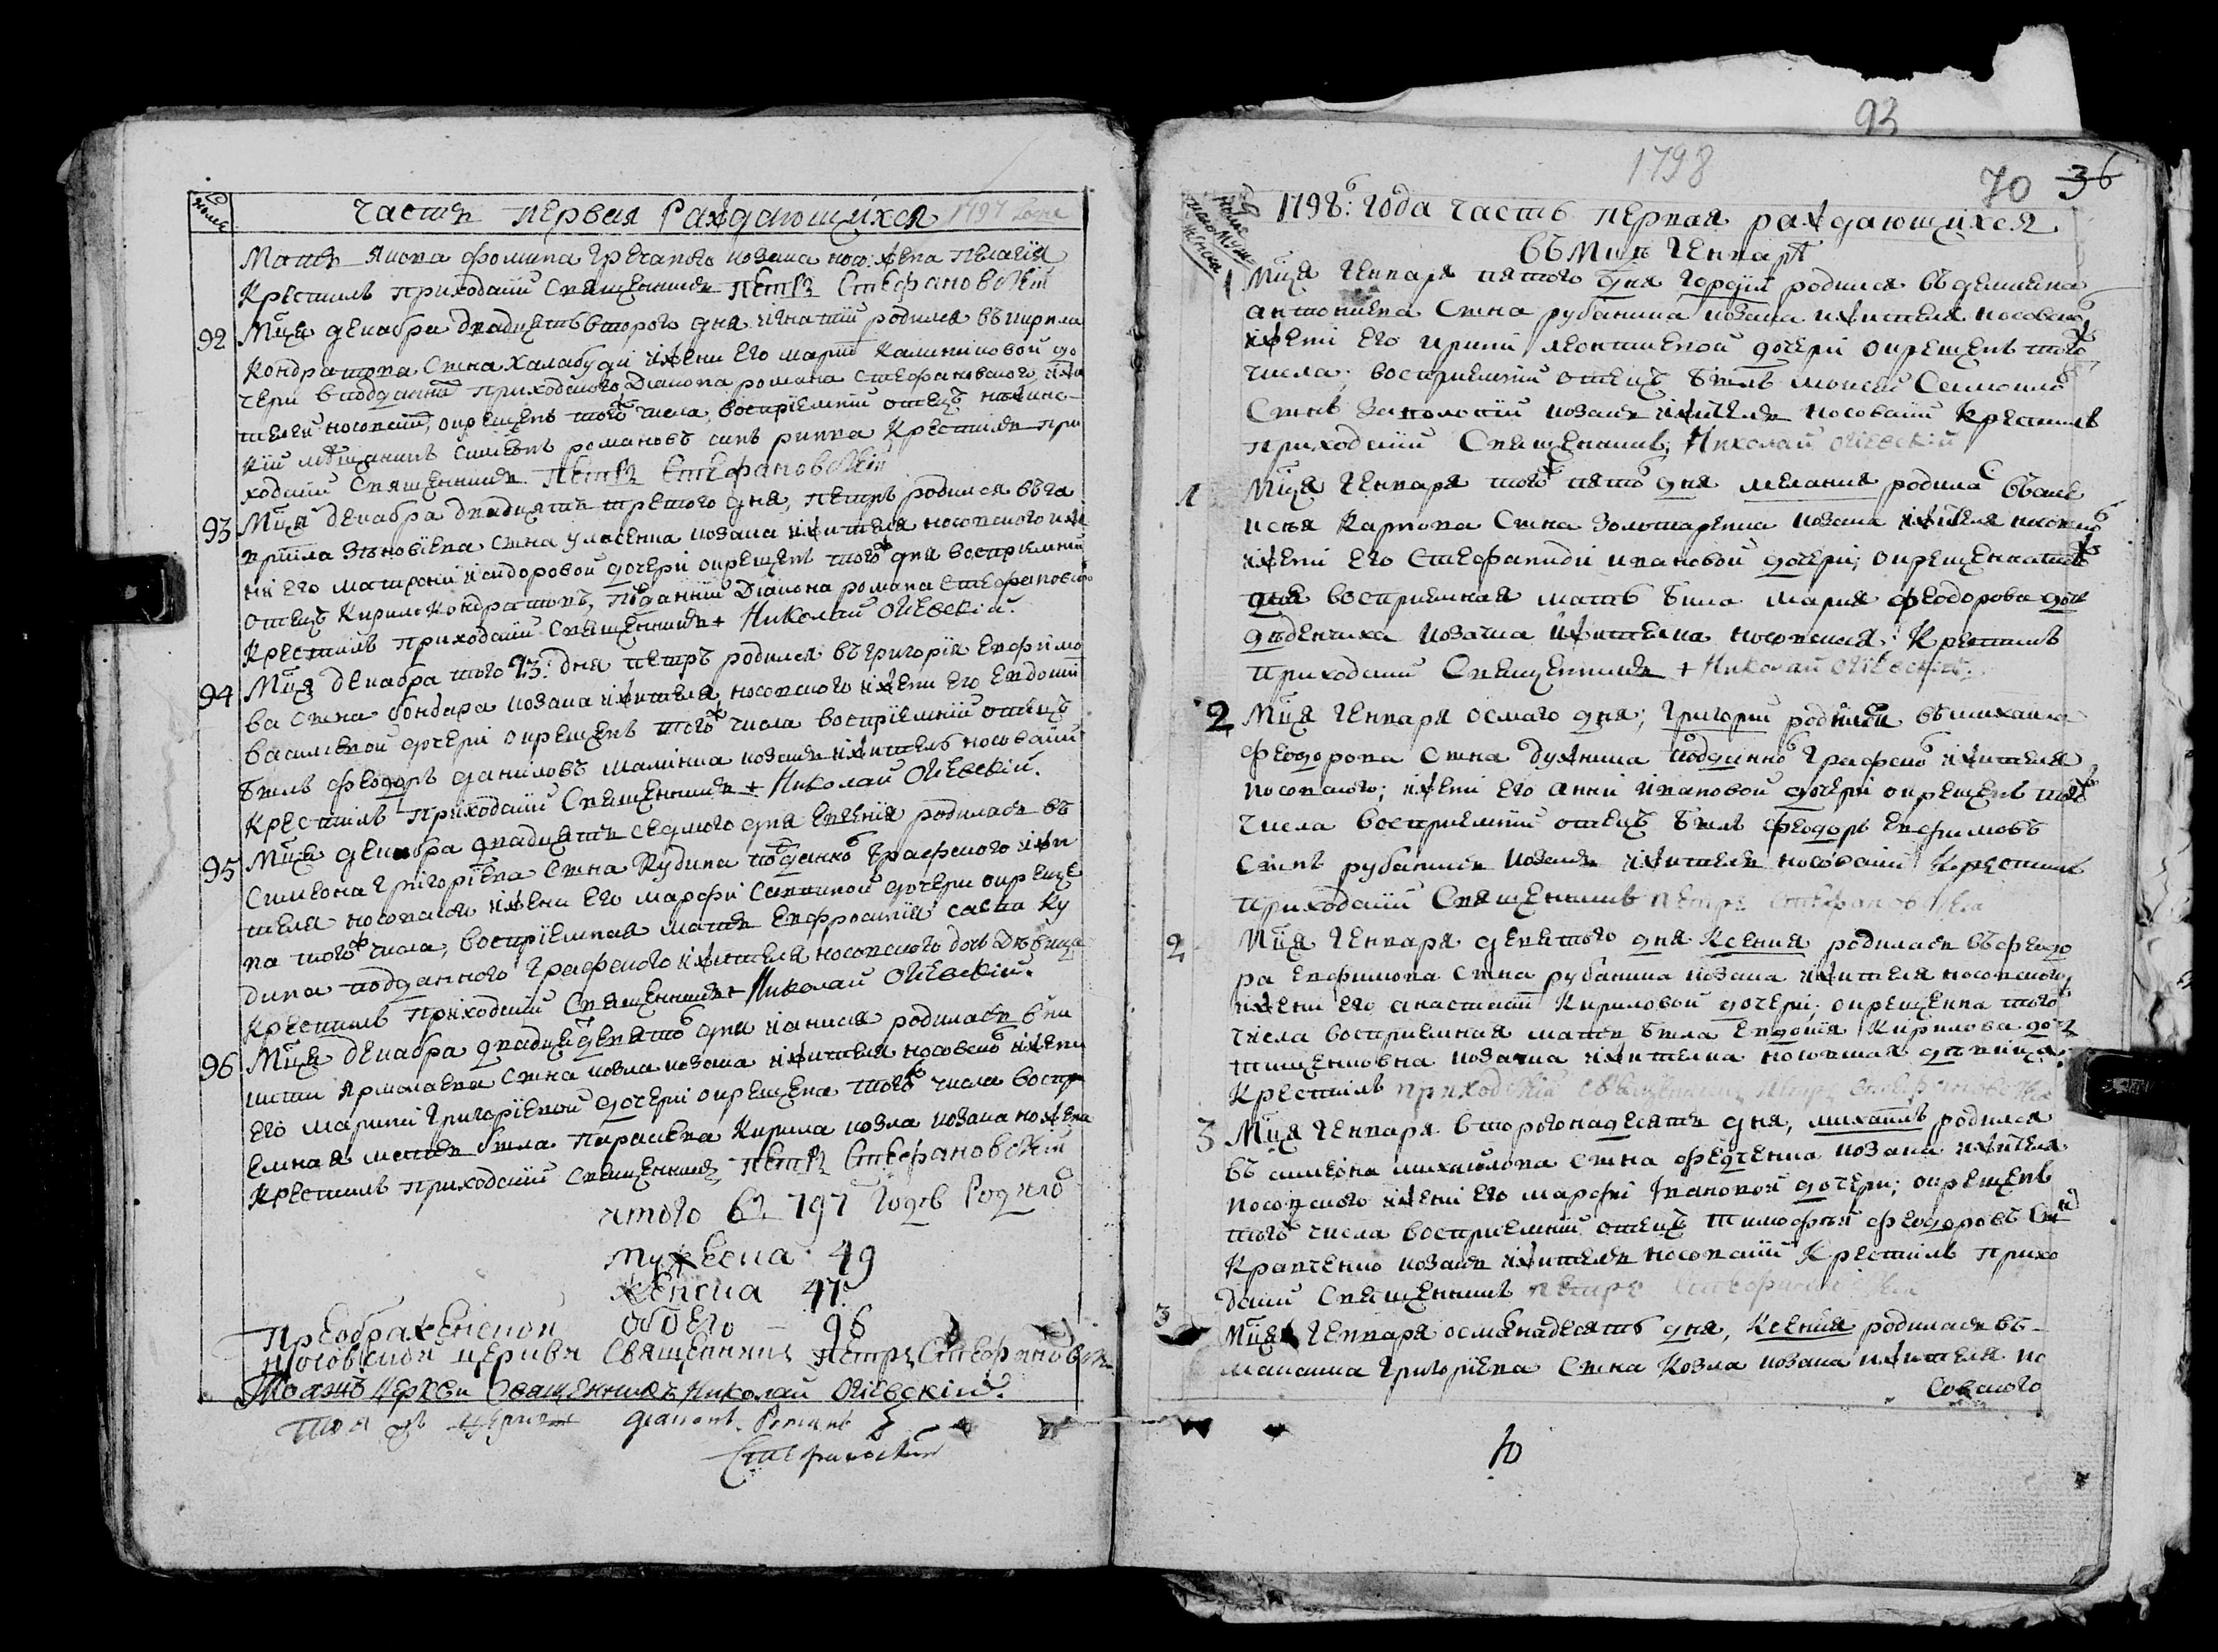 Часть первая Раждающихся 1797 Года
Мать якова фомина Гречаного козака нос: жена Пелагія
Крестилъ приходскій Священникъ Петръ Стефановскій
92 Мца декабра двадцять второго дня игнатій родился въ кирила
Кондратова Сына Халабуди и жени его марій Калениковой до
чери в подданій приходского Діакона романа Стефановского жи
телей носовскій, окрещенъ тогож числа, воспріемній отецъ
кій мѣщанинъ Симеонъ романовъ синъ Крестилъ при
ходскій Священникъ Петръ Стефановскій
93 Мца декабра двадцять третого дня, петръ родился въ га
врила Зѣновіева сына уласенка козака жителя носовского и же
ни его матрони исидоровой дочери окрещенъ тогож дня воспріемній
отецъ Кирило Кондратовъ, пѡданній Діакона романа Стефановского
Крестилъ приходскій Священникъ + Николай Огіевскій.
94 Мца декабра того 23: дня петръ родился въ григорія Евфимо
ва сина бондара козака жителя носовского и жени его Евдокіи
василіевой дочери окрещенъ тогож числа воспріемній отецъ
билъ феодоръ даниловъ козакъ житель носовскій
Крестилъ приходскій Священникъ + Николай Огіевскій.
95 Мца декабра двадцять седмого дня Евгенія родилась въ
Симеона Григоріева сина Кудина подданаго Графского жи
теля носовского и жени его марфи Саввиной дочери окреще
на тогож числа, воспріемная мать Евфросинія савы Ку
дина подданного Графского жителя носовского дочъ Дѣвица
Крестилъ приходскій Священникъ + Николай Огіевскій.
96 Мца декабра двадцять девятого дня іанисія родилась в ни
киты Ярмолаева сина козла козака жителя носовского и жени
его марини Григоріевой дочери окрещена тогож числа воспрі
емная мать била Параскева Кирила козла козака но жена
Крестилъ приходскій Священникъ Петръ Стефановскій
итого въ 797 Годъ Родило
мужеска 49
женска 47
обоего — 96
Преображенской
Носовской церкви Священникъ Петръ Стефановскій
Тояжъ Церкви Священникъ Николай Огіевскій.
Тояжъ церкви діаконъ Романъ
Стефановскій
93
1798
70 36
1798: года часть первая раждающихся
въ Мцѣ Генварѣ
1 Мца Генваря пятого дня Гордій родился въ демиана
антоніева сина рубаника козака и жителя носовского
жени его ирини леонтіевой дочери окрещенъ тогож
числа; воспріемній отецъ билъ моисей
Синъ Заполоскій козакъ житель носовскій Крестилъ
приходскій Священникъ; Николай Огіевскій
1 Мца Генваря тогож пятого дня мелания родилас въ але
ксѣя Карпова Сына Золотаренка козака жителя носовского
жени его Стефаниди ивановой дочери; окрещенна тогож
дня воспріемная мать била мария феодорова доч
дѣденчиха козачка жителка носовская: Крестилъ
приходскій Священникъ + Николай Огіевскій.
2 Мца Генваря осмаго дня; Григорій родился въ михаила
феодорова Сина дужника подданного Графского жителя
носовского; жени его анни ивановой дочери окрещенъ тогож
числа воспріемній отецъ билъ феодоръ Евфимовъ
Синъ рубаникъ козакъ житель носовскій Крестилъ
приходскій Священникъ петръ Стефановскій
2 Мца Генваря девятого дня Ксения родилась въ феодо
ра Евфимова Сина рубаника козака жителя носовского,
жени его анастасіи Кириловой дочери; окрещенна тогож
числа воспріемная мать била Евдокія Кирилова доч
тищенковна козачка жителка носовская дѣвица.
Крестилъ приходскій священникъ петръ Стефановскій
3 Мца Генваря второгонадесять дня, михаилъ родился
въ симеона михаилова Сина федченка козака жителя
носовского жени его марфи Ивановой дочери; окрещенъ
тогож числа воспріемній отецъ тимофѣй феодоровъ Синъ
Кравченко козакъ житель носовскій Крестилъ прихо
дскій Священникъ петръ Стефановскій
3 Мца Генваря осмогонадесять дня, Ксения родилась въ
Григоріева Сина Козла козака жителя но
совского
10